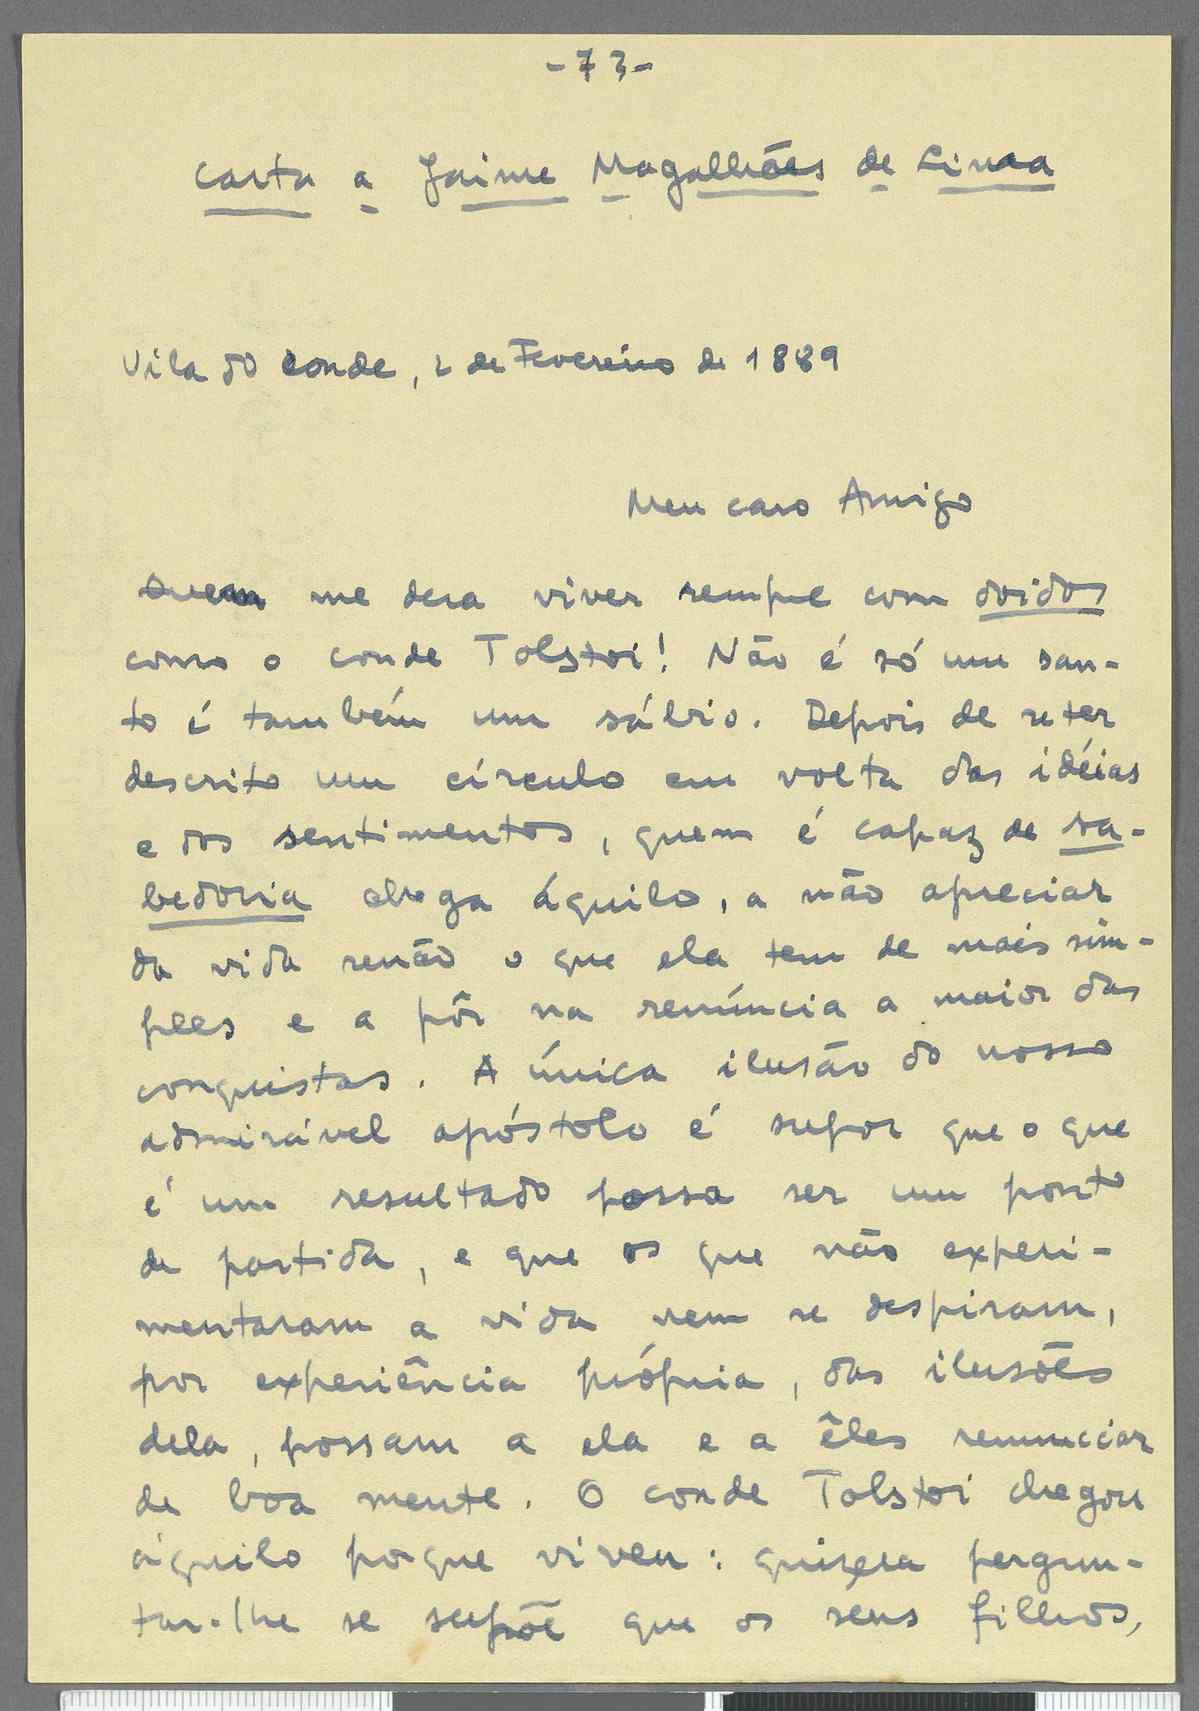 -73-
Carta a Jaime Magalhães de Lima
Vila do Conde, 2 de Fevereiro de 1889
Meu caro Amigo
Quem me dera viver sempre com doidos
como o conde Tolstoi! Não é só um san-
to é também um sábio. Depois de se ter
descrito um círculo em volta das idéias
e dos sentimentos, quem é capaz de sa-
bedoria chega àquilo, a não apreciar
da vida senão o que ela tem de mais sim-
ples e a pôr na renúncia a maior das
conquistas. A única ilusão do nosso
admirável apóstolo é supor que o que
é um resultado possa ser um ponto
de partida, e que os que não experi-
mentaram a vida nem se despiram,
por experiência própria, das ilusões
dela, possam a ela e a êles renunciar
de boa mente. O conde Tolstoi chegou
àquilo porque viveu: quisera pergun-
tar-lhe se supõe que os seus filhos,